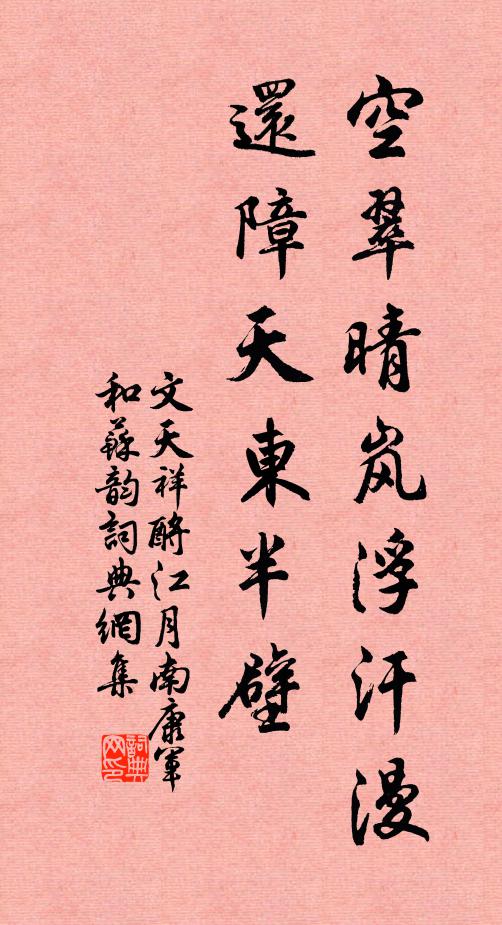 空翠晴岚浮汗漫
還障天東半壁
文天祥酹江月南康軍
和蘇韵詞典網集
詞典网印